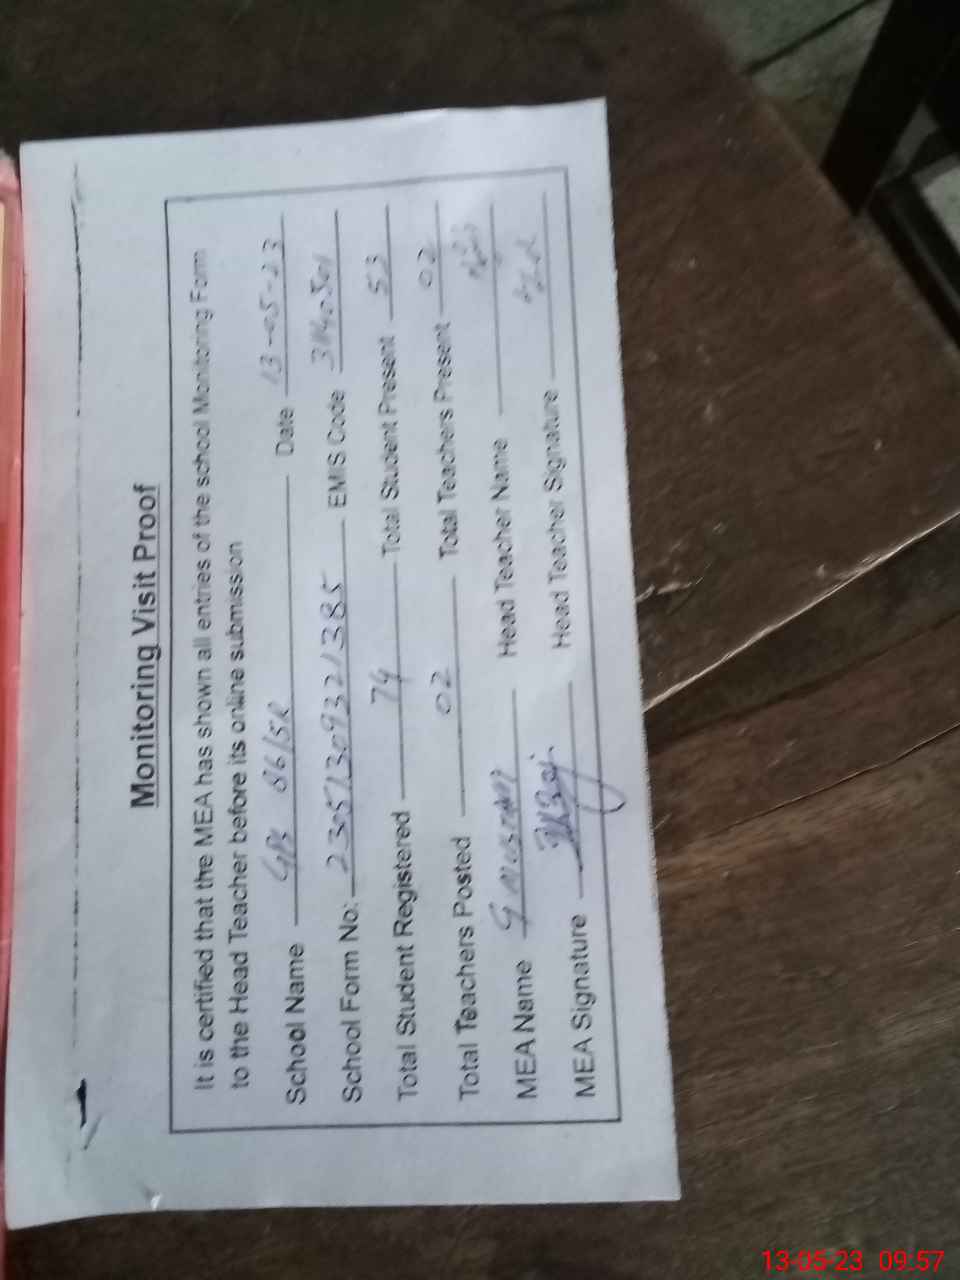 Monitoring Visit Proof
It is certified that the MEA has shown all entries of the school Monitoring Form
to the Head Teacher before its online submission
School Name GPS 8615R Date 13-05-23
School Form No: 23051309321385 EMIS Code
Total Student Registered 74 Total Student Present 53
Total Teachers Posted 02 Total Teachers Present 02
MEA Name Head Teacher Name
MEA Signature Head Teacher Signature
13-05-23 09:57